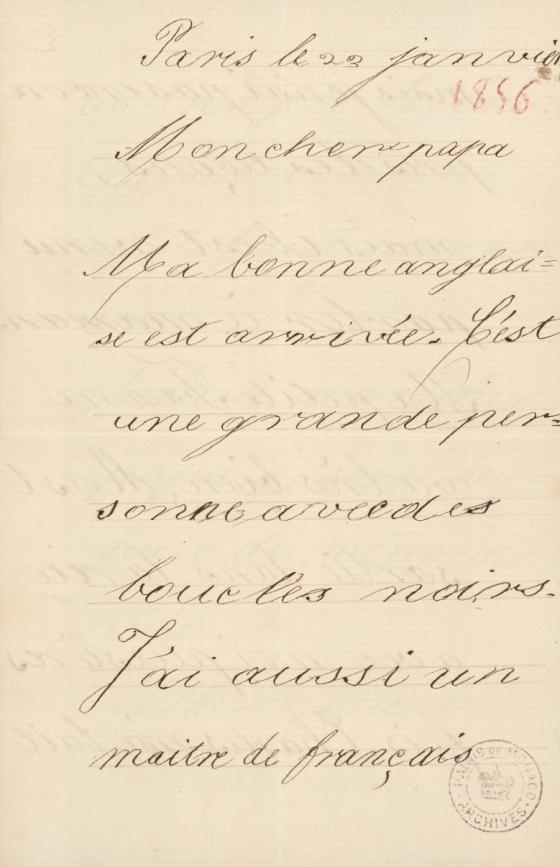 Paris le 22 janvier
1856
Mon cher papa
Ma bonne anglai=
se est arrivée. C'est
une grande per=
sonne avec des
boucles noirs.
J'ai aussi un
maitre de français
PALAIS DE MONACO
ARCHIVES